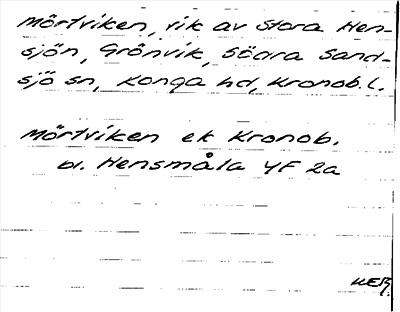 Mörtviken, vik av Stora Hen-
sjön, Grönvik, Södra Sand-
sjö sn, Konga hd, Kronob. l.
Mörtviken ek Kronob.
bl. Hensmåla 4F 2a
KER.